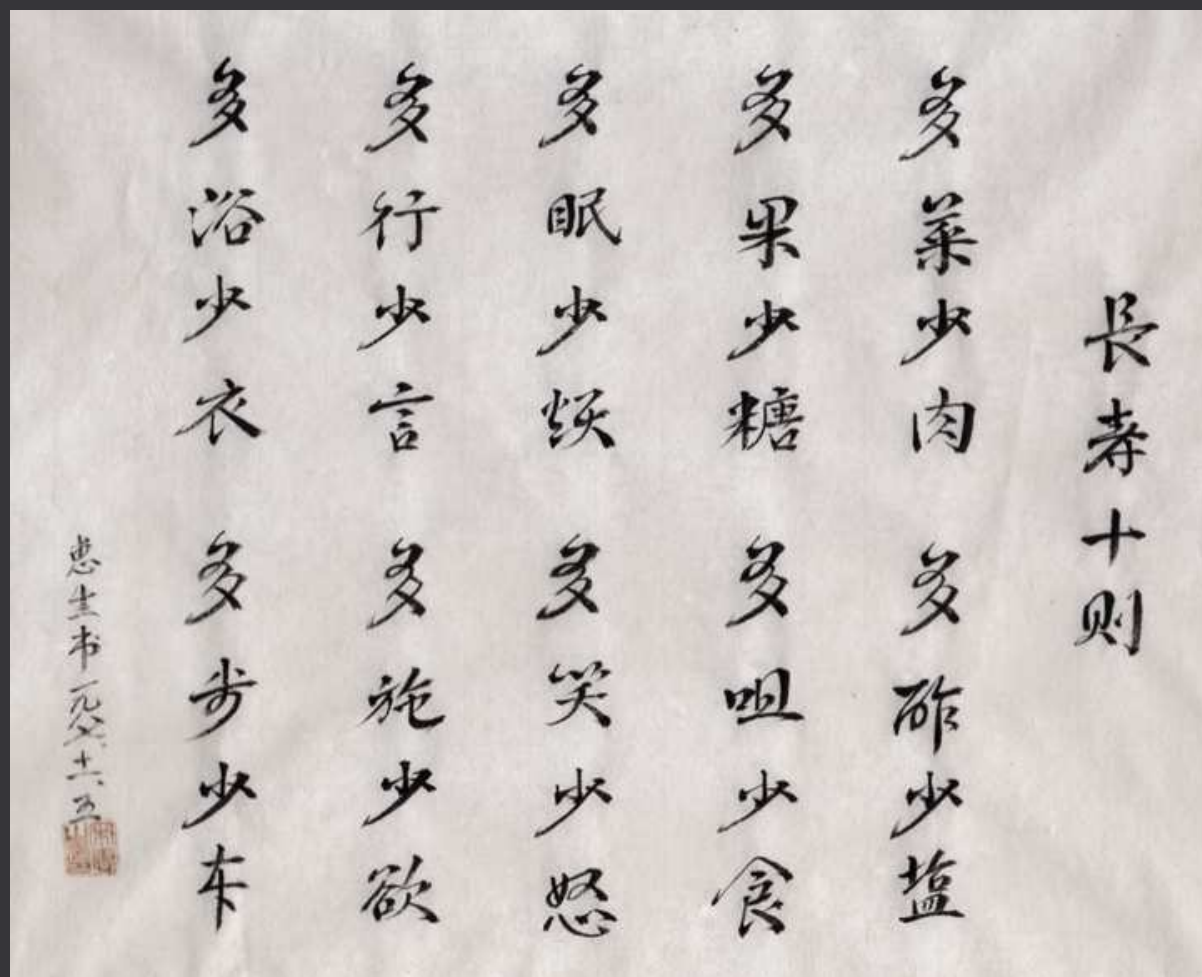 長寿十则
多菜少肉 多酢少塩
多果少糖 多咀少食
多眠少烦 多笑少怒
多行少言 多施少欲
多浴少衣 多步少车
惠生书一九八六.十一.五